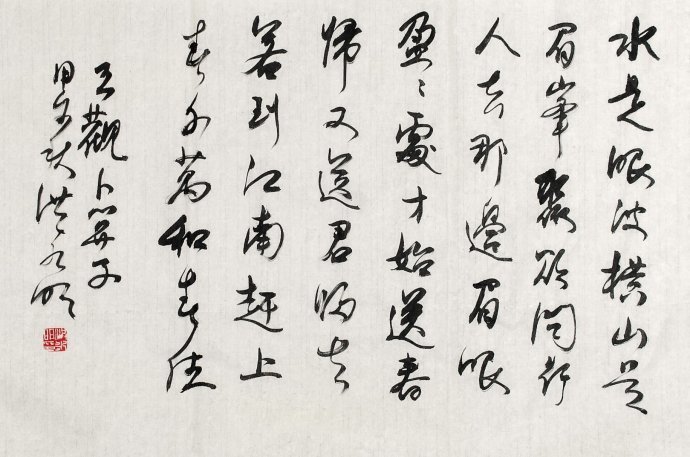 水是眼波横山是
眉峯聚欲问行
人去那邊眉眼
盈〻處才始送春
歸又送君归去
若到江南赶上
春千萬和春住
王觀卜算子
甲午 洪 明